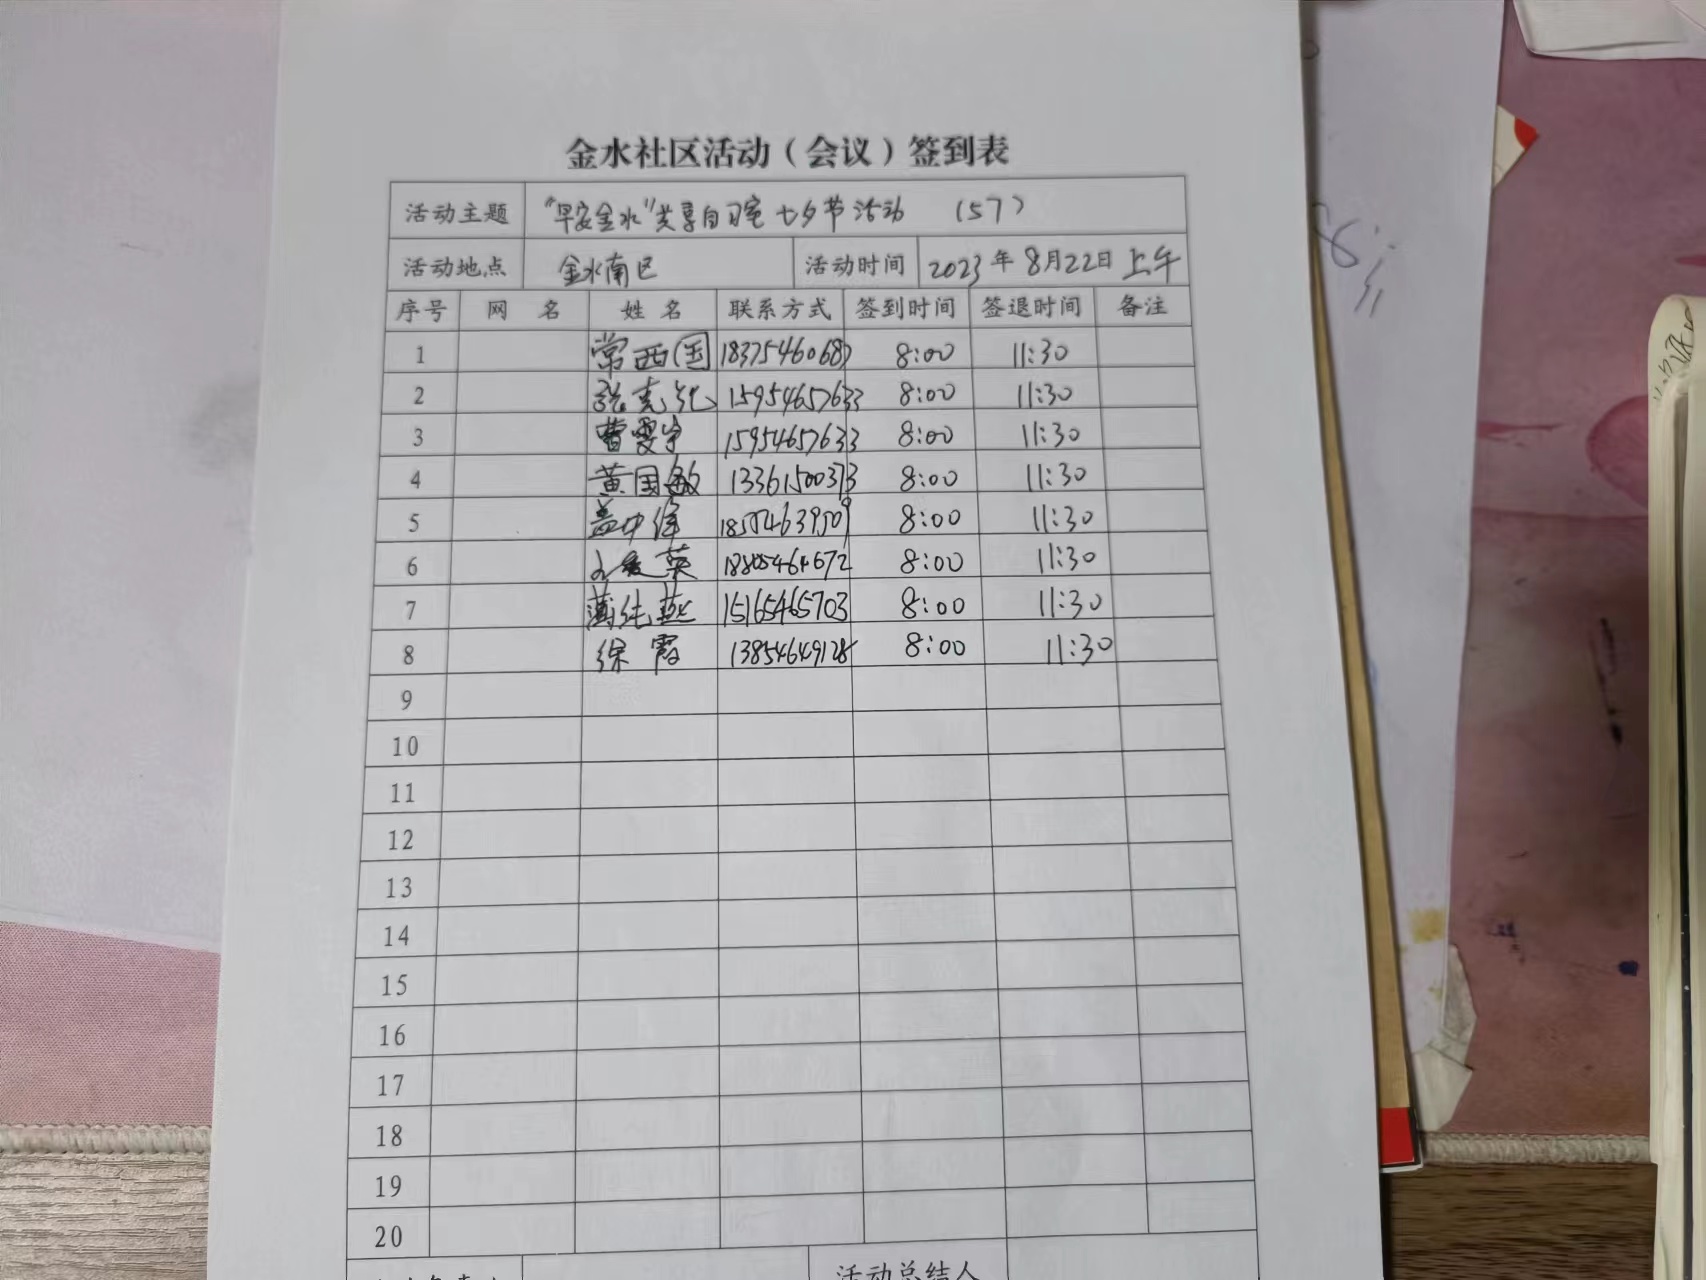 金水社区活动（会议）签到表
活动主题 "早安金水"共享自习室 七夕节活动 （57）
活动地点 金水南区 活动时间 2023年8月22日上午
序号 网名 姓名 联系方式 签到时间 签退时间 备注
1 常西国 18375460687 8:00 11:30
2 15954657633 8:00 11:30
3 曹雯宇 15954657633 8:00 11:30
4 黄国敏 13361500373 8:00 11:30
5 盖中伟 8:00 11:30
6 8:00 11:30
7 蔺纯燕 15165465703 8:00 11:30
8 徐霞 13854649128 8:00 11:30
9
10
11
12
13
14
15
16
17
18
19
20
活动总结人